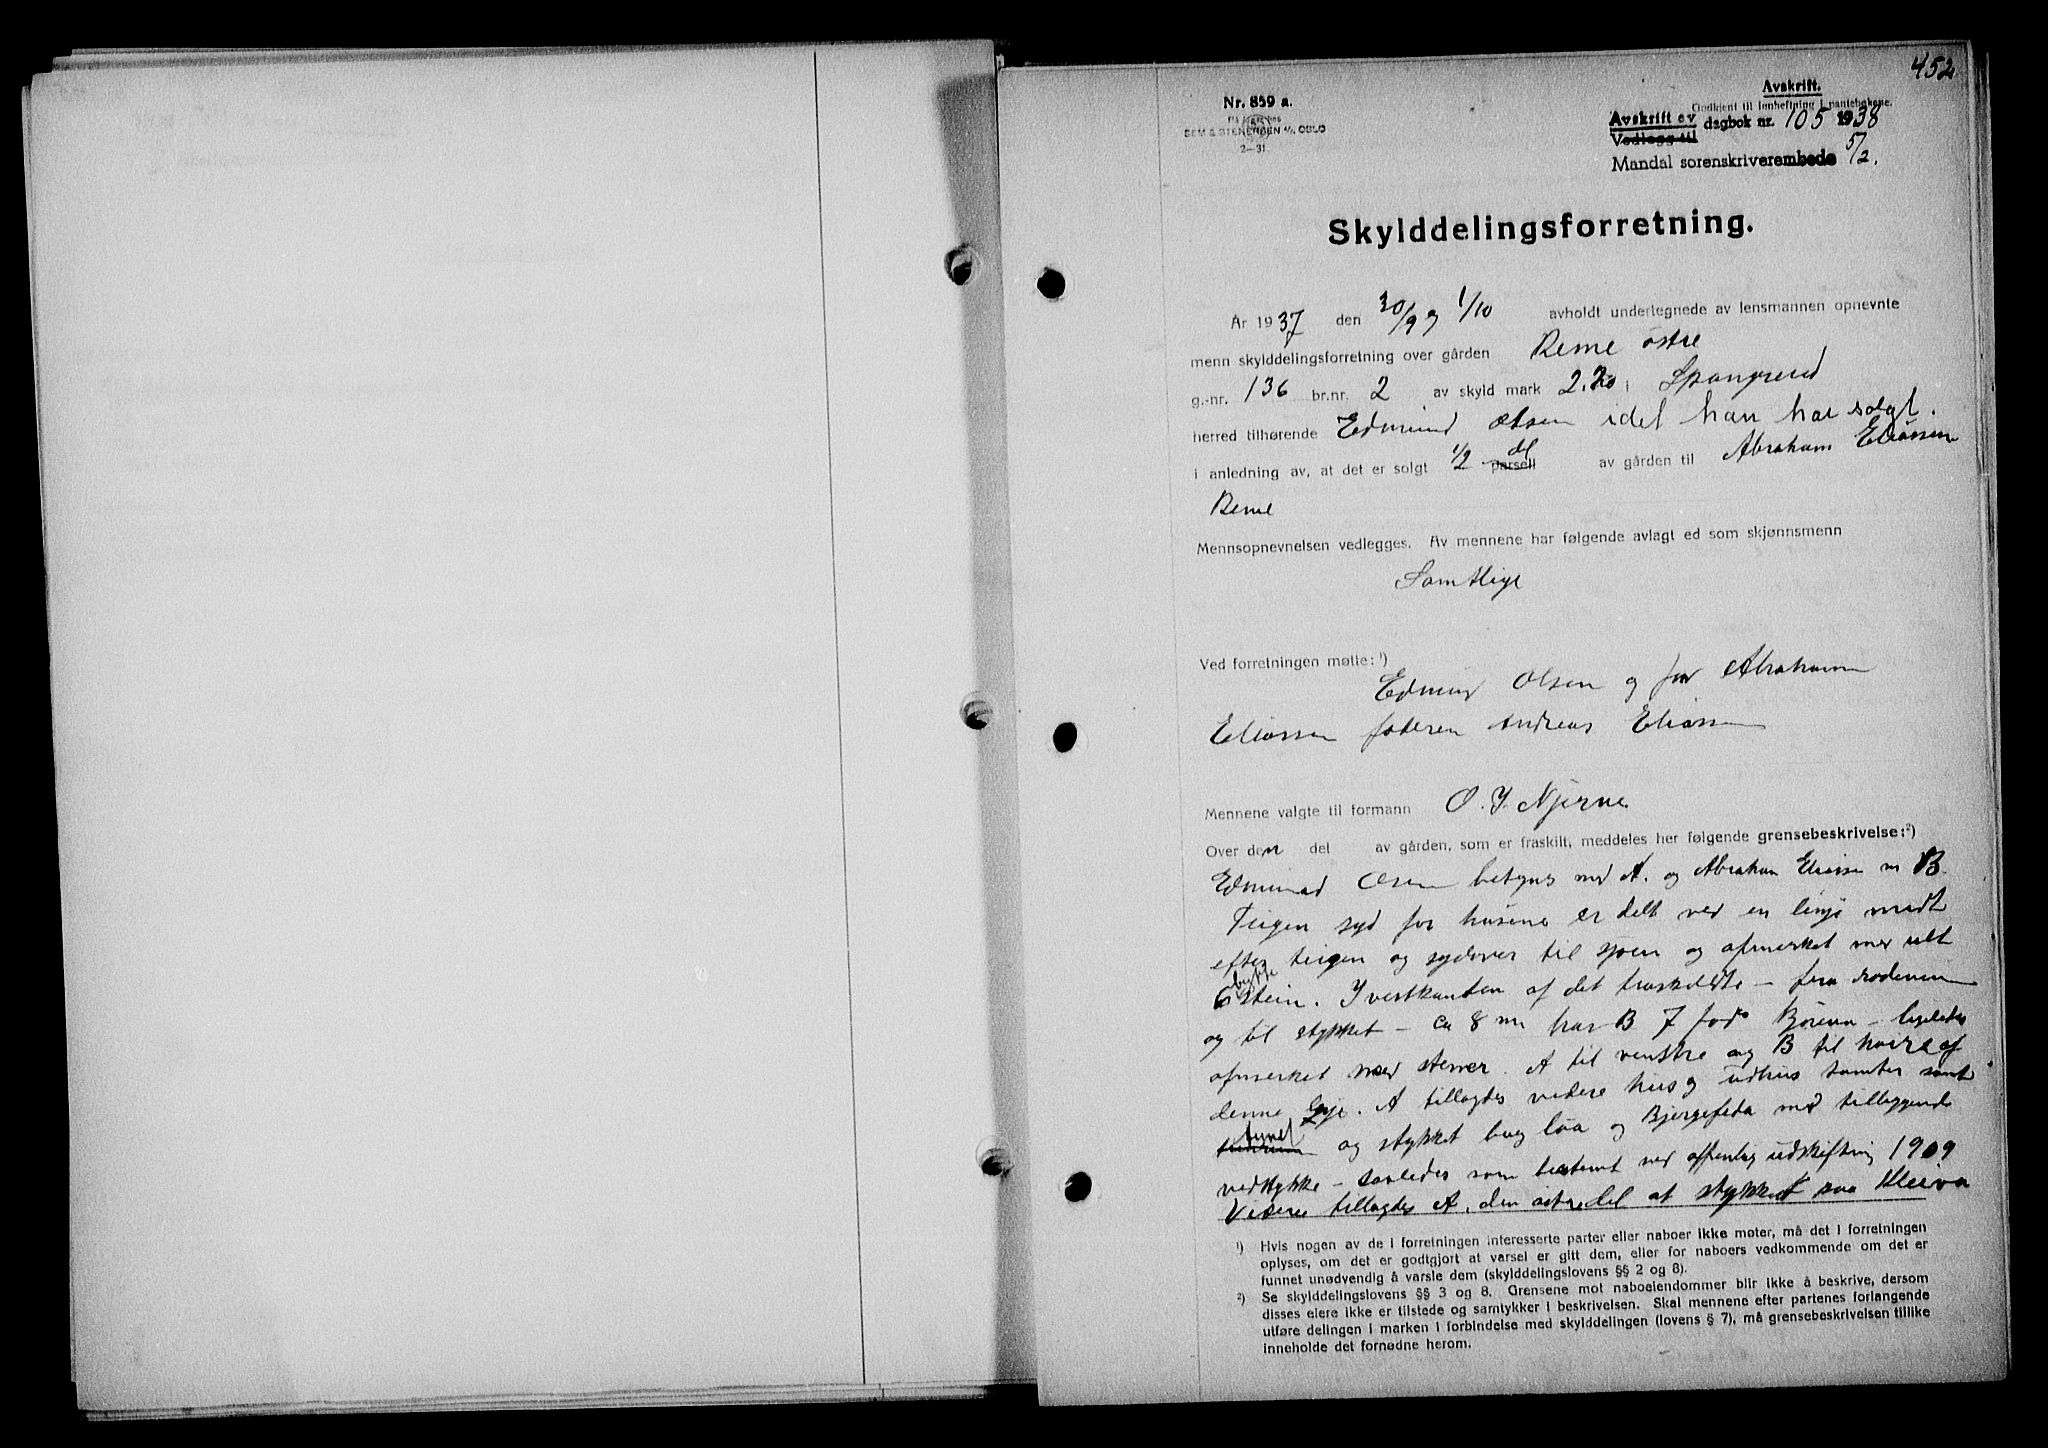 452
Avskrift.
Nr. 859 a.
Godkjent til innheftning i pantebøkene.
Få hos
SEM & STENERSEN A/S OSLO
2—31.
Avskrift av dagbok nr. 105 1938
Vedlegg til 5/2.
Mandal sorenskriverembede
Skylddelingsforretning.
År 1937 den 30/9 og 1/10 avholdt undertegnede av lensmannen opnevnte
menn skylddelingsforretning over gården Reme østre
g.-nr. 136 br.nr. 2 av skyld mark 2.20 i Spangereid
herred tilhørende Edmund Olsen idet han har solgt.
i anledning av, at det er solgt 1/2 parsell del av gården til Abraham Eliassen
Reme
Mennsopnevnelsen vedlegges. Av mennene har følgende avlagt ed som skjønnsmenn
Samtlige
Ved forretningen møtte: ¹)
Edmund Olsen og for Abraham
Eliassen faderen Andreas Eliassen
Mennene valgte til formann O. J. Njerve
Over den del av gården, som er fraskilt, meddeles her følgende grensebeskrivelse: ²)
Edmund Olsen betegnes med A. og Abraham Eliassen m B.
Teigen syd for husene er delt ved en linje midt
efter teigen og sydover til sjøen og afmerket med udt
6 bykse stein. I vestkanten af det fraskildte – fra
og til stykket – ca 8 m har B 7 fod – ligeledes
afmerket med stener. A til venstre og B til høire af
denne linje. A tillagdes videre hus og udhus tomter samt
tunet og stykket bag løa og Bjergefeda med tilliggende
vedstykke – saaledes som bestemt ved offentlig udskiftning 1909
Videre tillagdes A. den østre del af stykket paa Kleiva
¹) Hvis nogen av de i forretningen interesserte parter eller naboer ikke møter, må det i forretningen
oplyses, om det er godtgjort at varsel er gitt dem, eller for naboers vedkommende om det er
funnet unødvendig å varsle dem (skylddelingslovens §§ 2 og 8).
²) Se skylddelingslovens §§ 3 og 8. Grensene mot naboeiendommer blir ikke å beskrive, dersom
disses eiere ikke er tilstede og samtykker i beskrivelsen. Skal mennene efter partenes forlangende
utføre delingen i marken i forbindelse med skylddelingen (lovens § 7), må grensebeskrivelsen tillike
inneholde det fornødne herom.